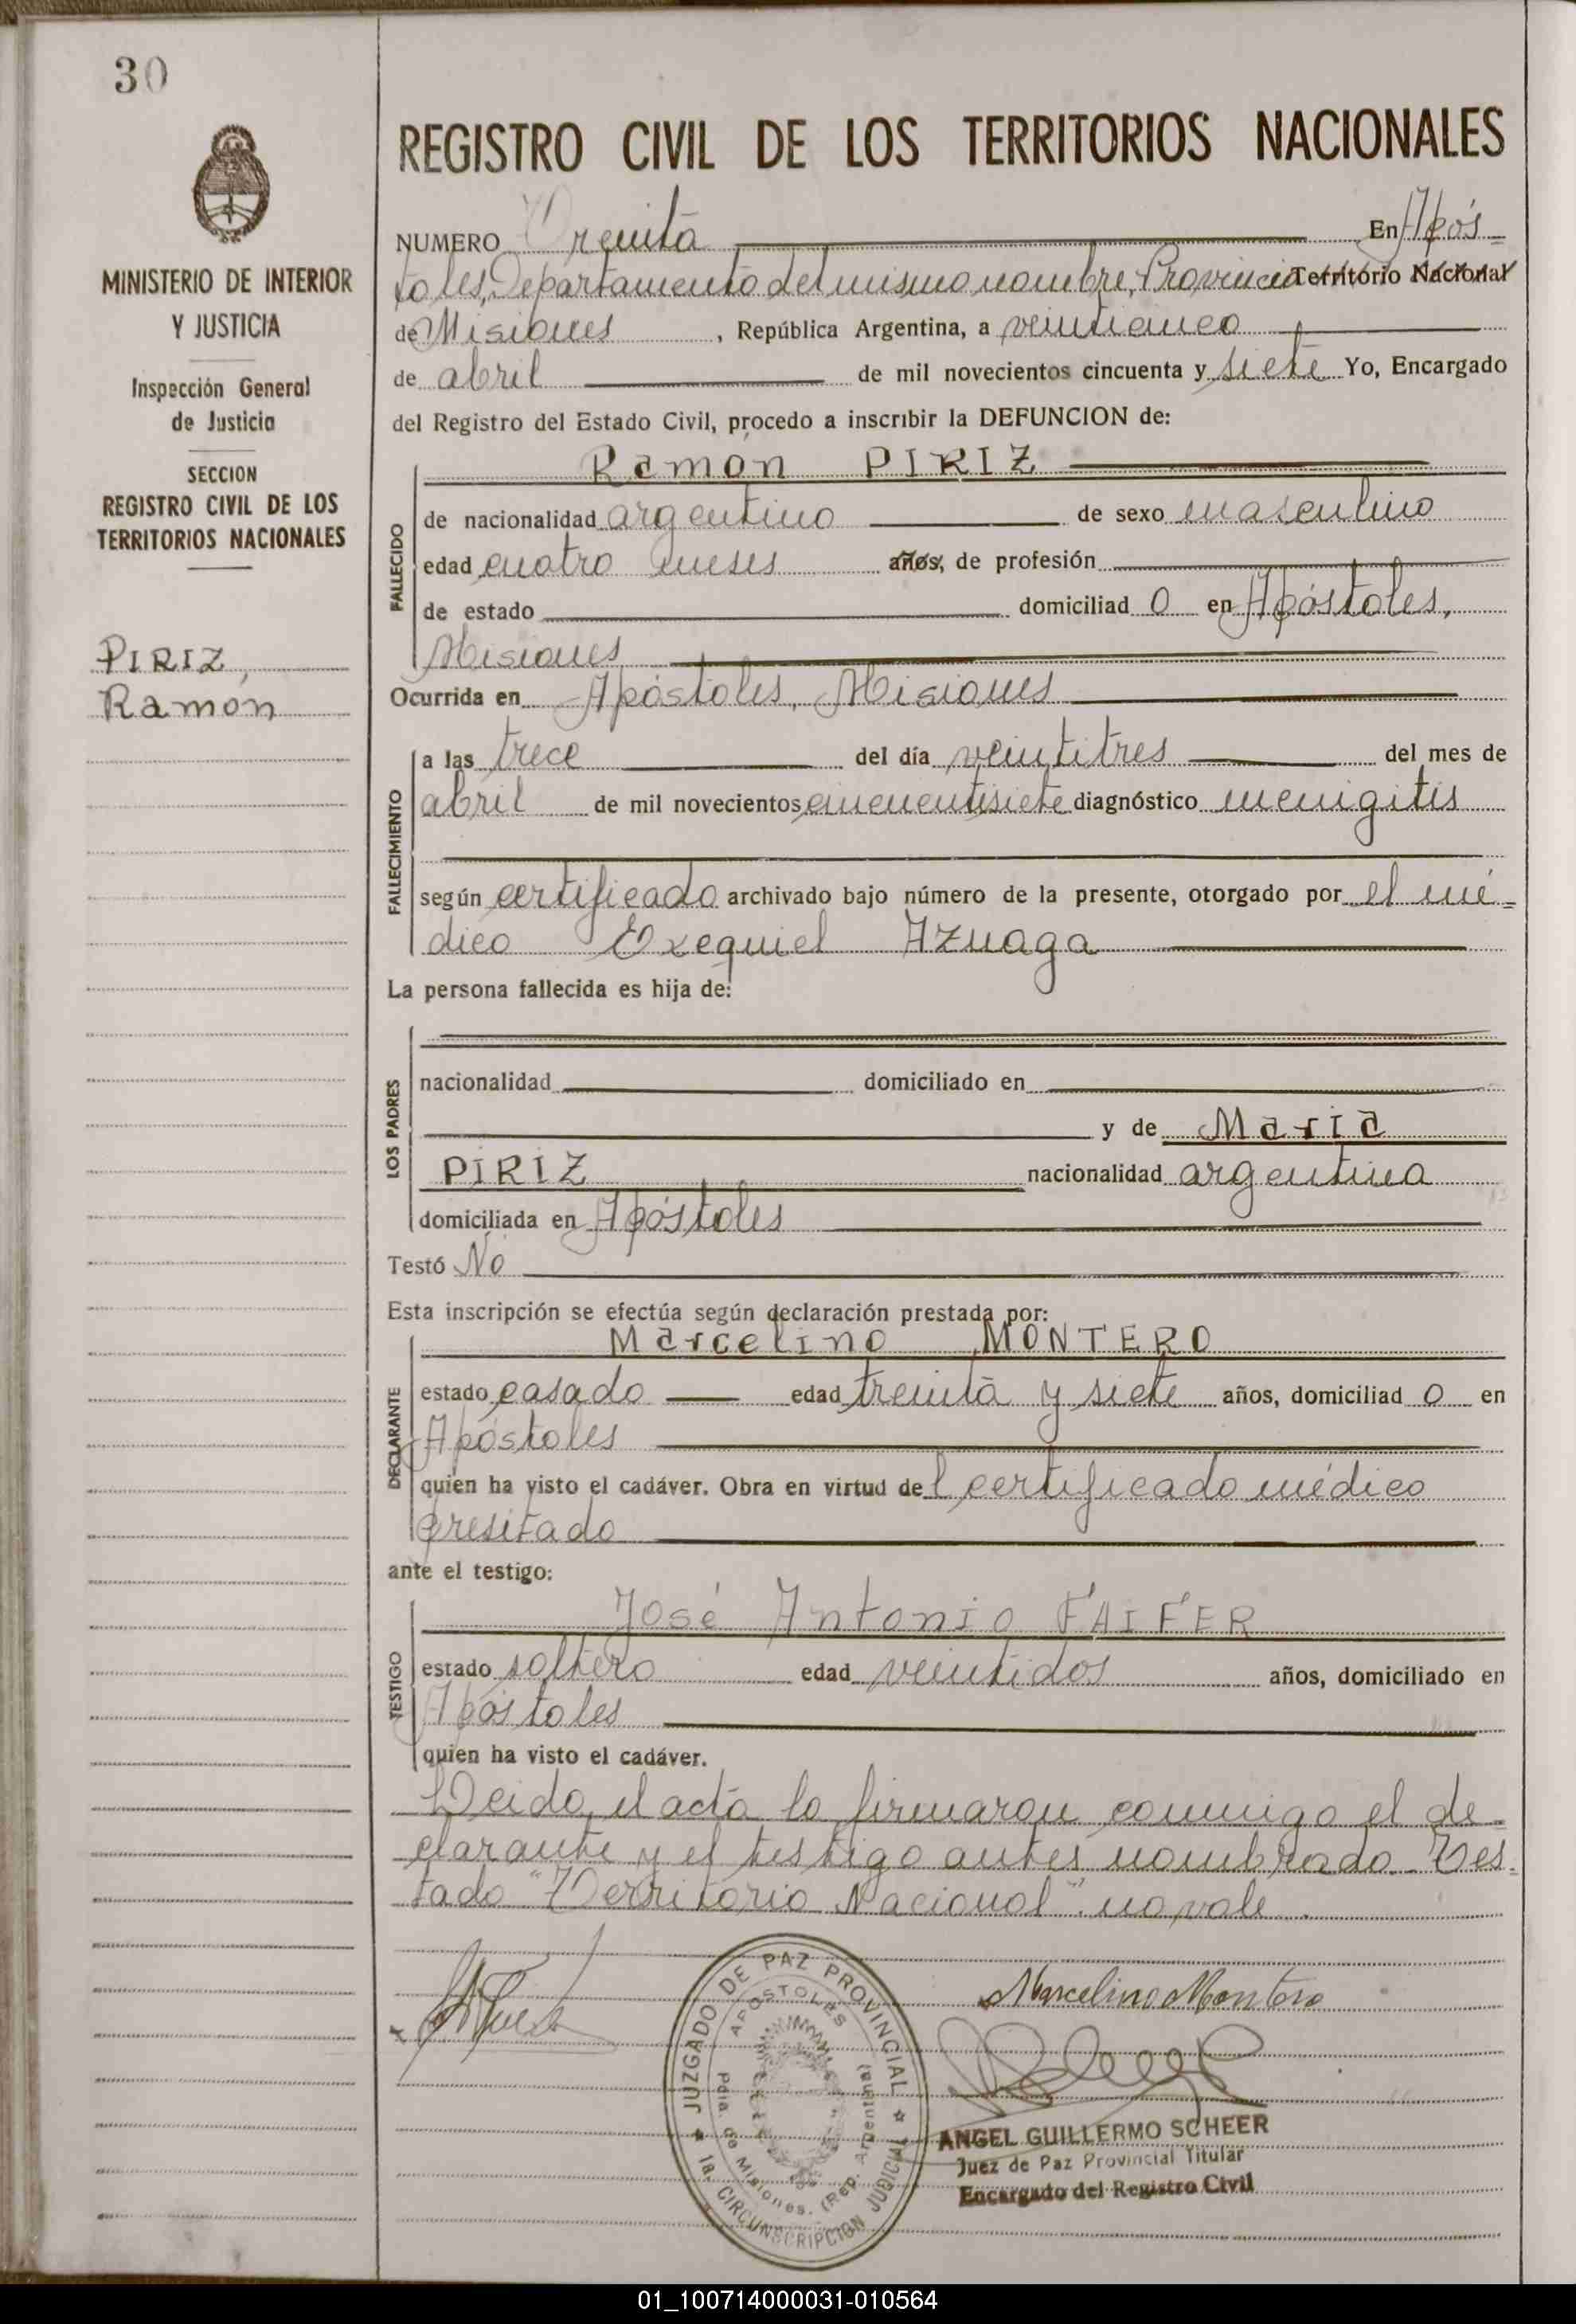 30
MINISTERIO DE INTERIOR
Y JUSTICIA
Inspección General
de Justicia
SECCION
REGISTRO CIVIL DE LOS
TERRITORIOS NACIONALES
PIRIZ,
Ramón
REGISTRO CIVIL DE LOS TERRITORIOS NACIONALES
NUMERO Treinta En Após-
toles, Departamento del mismo nombre, Provincia Territorio Nacional
de Misiones, República Argentina, a veinticinco
de abril de mil novecientos cincuenta y siete Yo, Encargado
del Registro del Estado Civil, procedo a inscribir la DEFUNCION de:
Ramón PIRIZ
FALLECIDO
de nacionalidad argentino de sexo masculino
edad cuatro meses años, de profesión
de estado domiciliad o en Apóstoles,
Misiones
Ocurrida en Apóstoles, Misiones
FALLECIMIENTO
a las trece del día veintitres del mes de
abril de mil novecientos cincuentisiete diagnóstico menigitis
según certificado archivado bajo número de la presente, otorgado por el mé-
dico Exequiel Azuaga
La persona fallecida es hija de:
LOS PADRES
nacionalidad domiciliado en
y de María
PIRIZ nacionalidad argentina
domiciliada en Apóstoles
Testó No
Esta inscripción se efectúa según declaración prestada por:
Marcelino MONTERO
DECLARANTE
estado casado edad treinta y siete años, domiciliad o en
Apóstoles
quien ha visto el cadáver. Obra en virtud de l certificado médico
presitado
ante el testigo:
José Antonio FAIFER
TESTIGO
estado soltero edad veintidos años, domiciliado en
Apóstoles
quien ha visto el cadáver.
Leida el acta la firmaron conmigo el de-
clarante y el testigo antes nombrado. Tes-
tado "Territorio Nacional". no vale.
Marcelino Montero
JUZGADO DE PAZ PROVINCIAL
APOSTOLES
Pcia. de Misiones. (Rep. Argentina)
1a. CIRCUNSCRIPCION JUDICIAL
ANGEL GUILLERMO SCHEER
Juez de Paz Provincial Titular
Encargado del Registro Civil
01_100714000031-010564